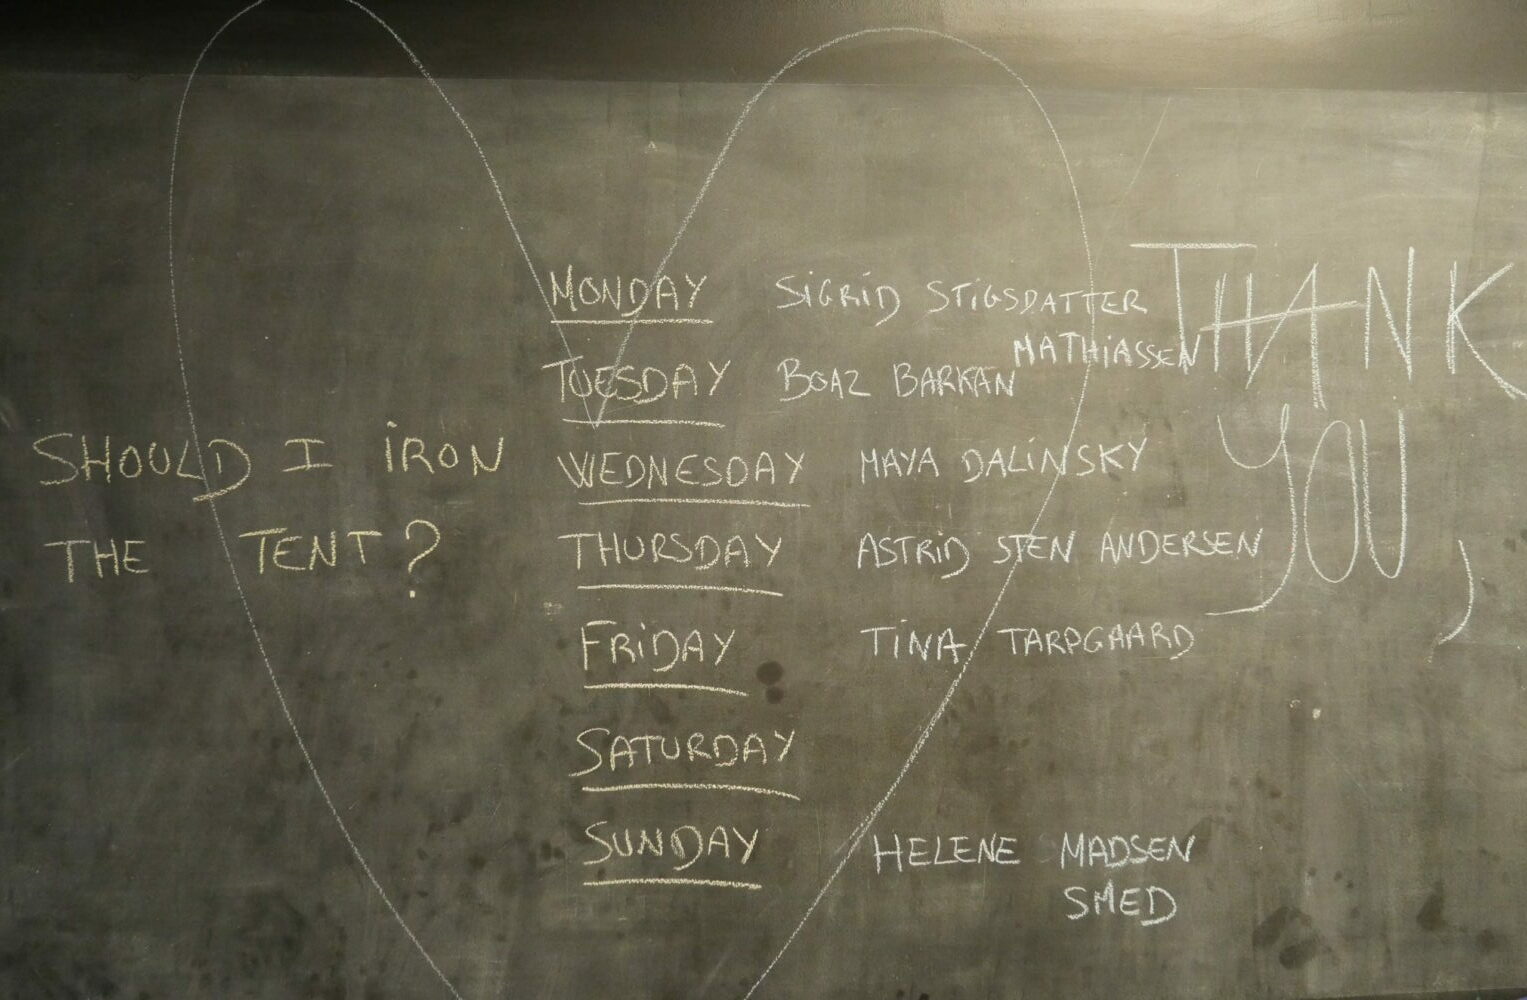 SHOULD I IRON
THE TENT?
MONDAY SIGRID STIGSDATTER
MATHIASSEN
TUESDAY BOAZ BARKAN
WEDNESDAY MAYA DALINSKY
THURSDAY ASTRID STEN ANDERSEN
FRIDAY TINA TARPGAARD
SATURDAY
SUNDAY HELENE MADSEN
SMED
THANK
YOU,